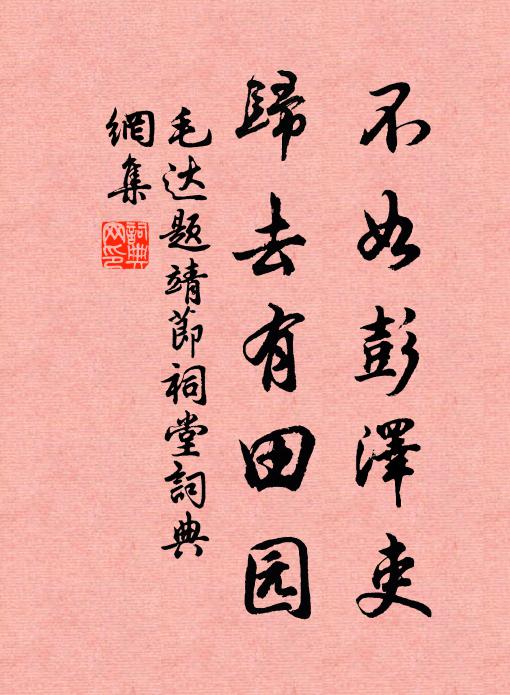 不如彭澤吏
歸去有田园
毛达题靖節祠堂詞典
網集
詞典
网印